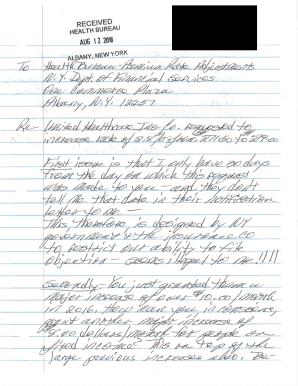 RECEIVED
HEALTH BUREAU
AUG 12 2016
ALBANY, NEW YORK
To Health Bureau Premium Rate Adjustments
N.Y. Dept of Financial Services
One Commerce Plaza
Albany, N.Y. 12257
Re - United Healthcare Ins. Co. requested to
increase rate of
First issue is that I only have 30 days
from the day on which this request
was made to you - and they don't
tell me that date in their notification
letter to me -
This therefore is designed by NY
government & the insurance co
to restrict our ability to file
objection - seems illegal to me !!!!
Secondly - You just granted them a
major increase of over $10.00/month
in 2016. How can you, in conscience,
grant another major increase of
dollars/month for people on
fixed income? This on top of the
large previous increases also.